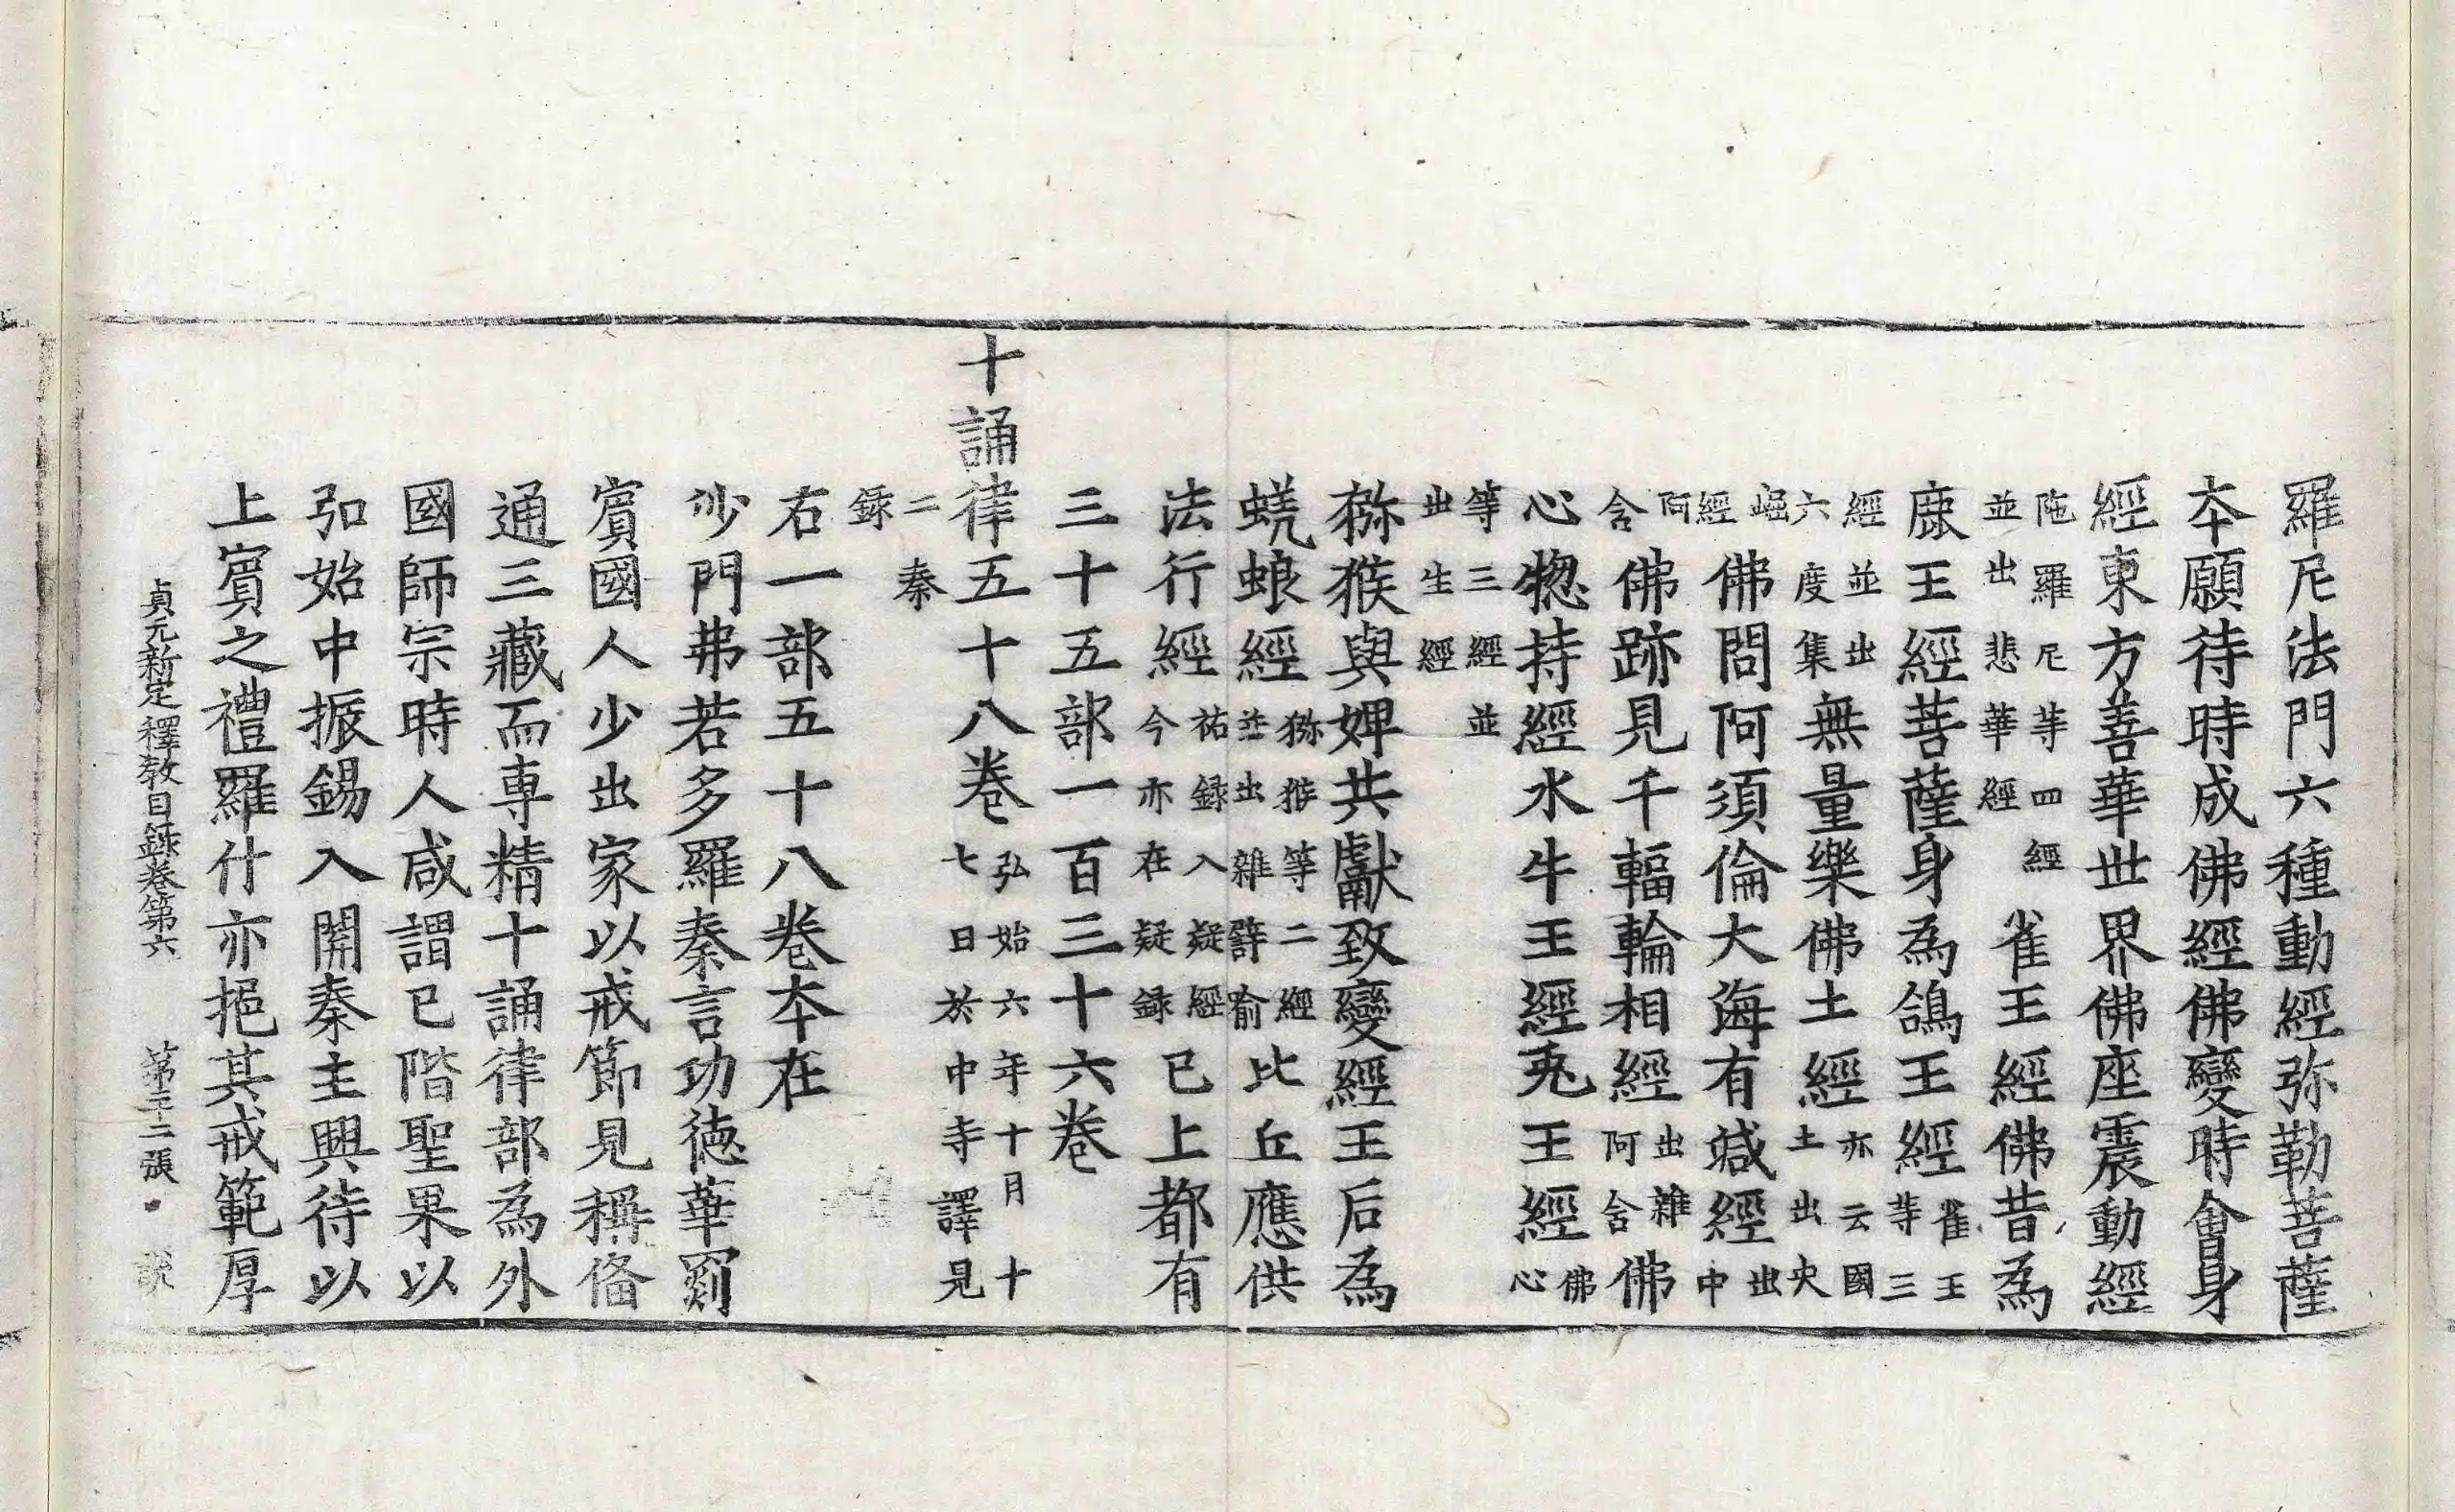 羅尼法門六種動經弥勒菩薩
本願待時成佛經佛變時會身
經東方善華世界佛座震動經
陁羅尼等四經並出悲華經雀王經佛昔為
鹿王經菩薩身為鴿王經雀王等三
經並出六度集無量樂佛土經亦云國土出央
崛經佛問阿須倫大海有減經出中
阿含佛跡見千輻輪相經出雜阿含佛
心惣持經水牛王經兎王經佛心
等三經並出生經
猕猴與婢共獻致變經王后為
蜣蜋經猕猴等二經並出雜譬喻比丘應供
法行經祐録入疑經今亦在疑録已上都有
三十五部一百三十六卷
十誦律五十八卷弘始六年十月十七日於中寺譯見
二秦録
右一部五十八卷本在
沙門弗若多羅秦言功徳華罽
賓國人少出家以戒節見稱俻
通三藏而専精十誦律部為外
國師宗時人咸謂已階聖果以
弘始中振錫入關秦主興待以
上賓之禮羅什亦挹其戒範厚
貞元新定釋教目録卷第六 第二十二張 說